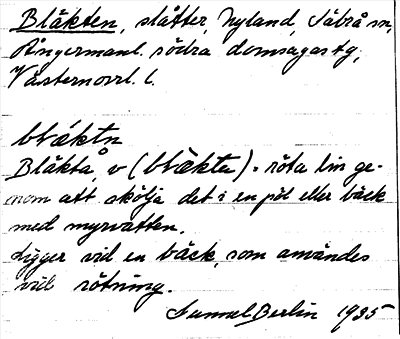 Bläkten, slåtter, Nyland, Säbrå sn,
Ångermanl. södra domsagas tg,
Västernorrl. l.
blǽktn
Bläkta, v (blæ̀kta) = röta lin ge-
nom att skölja det i en pöl eller bäck
med myrvatten.
Ligger vid en bäck, som användes
vid rötning.
Samuel Berlin 1935